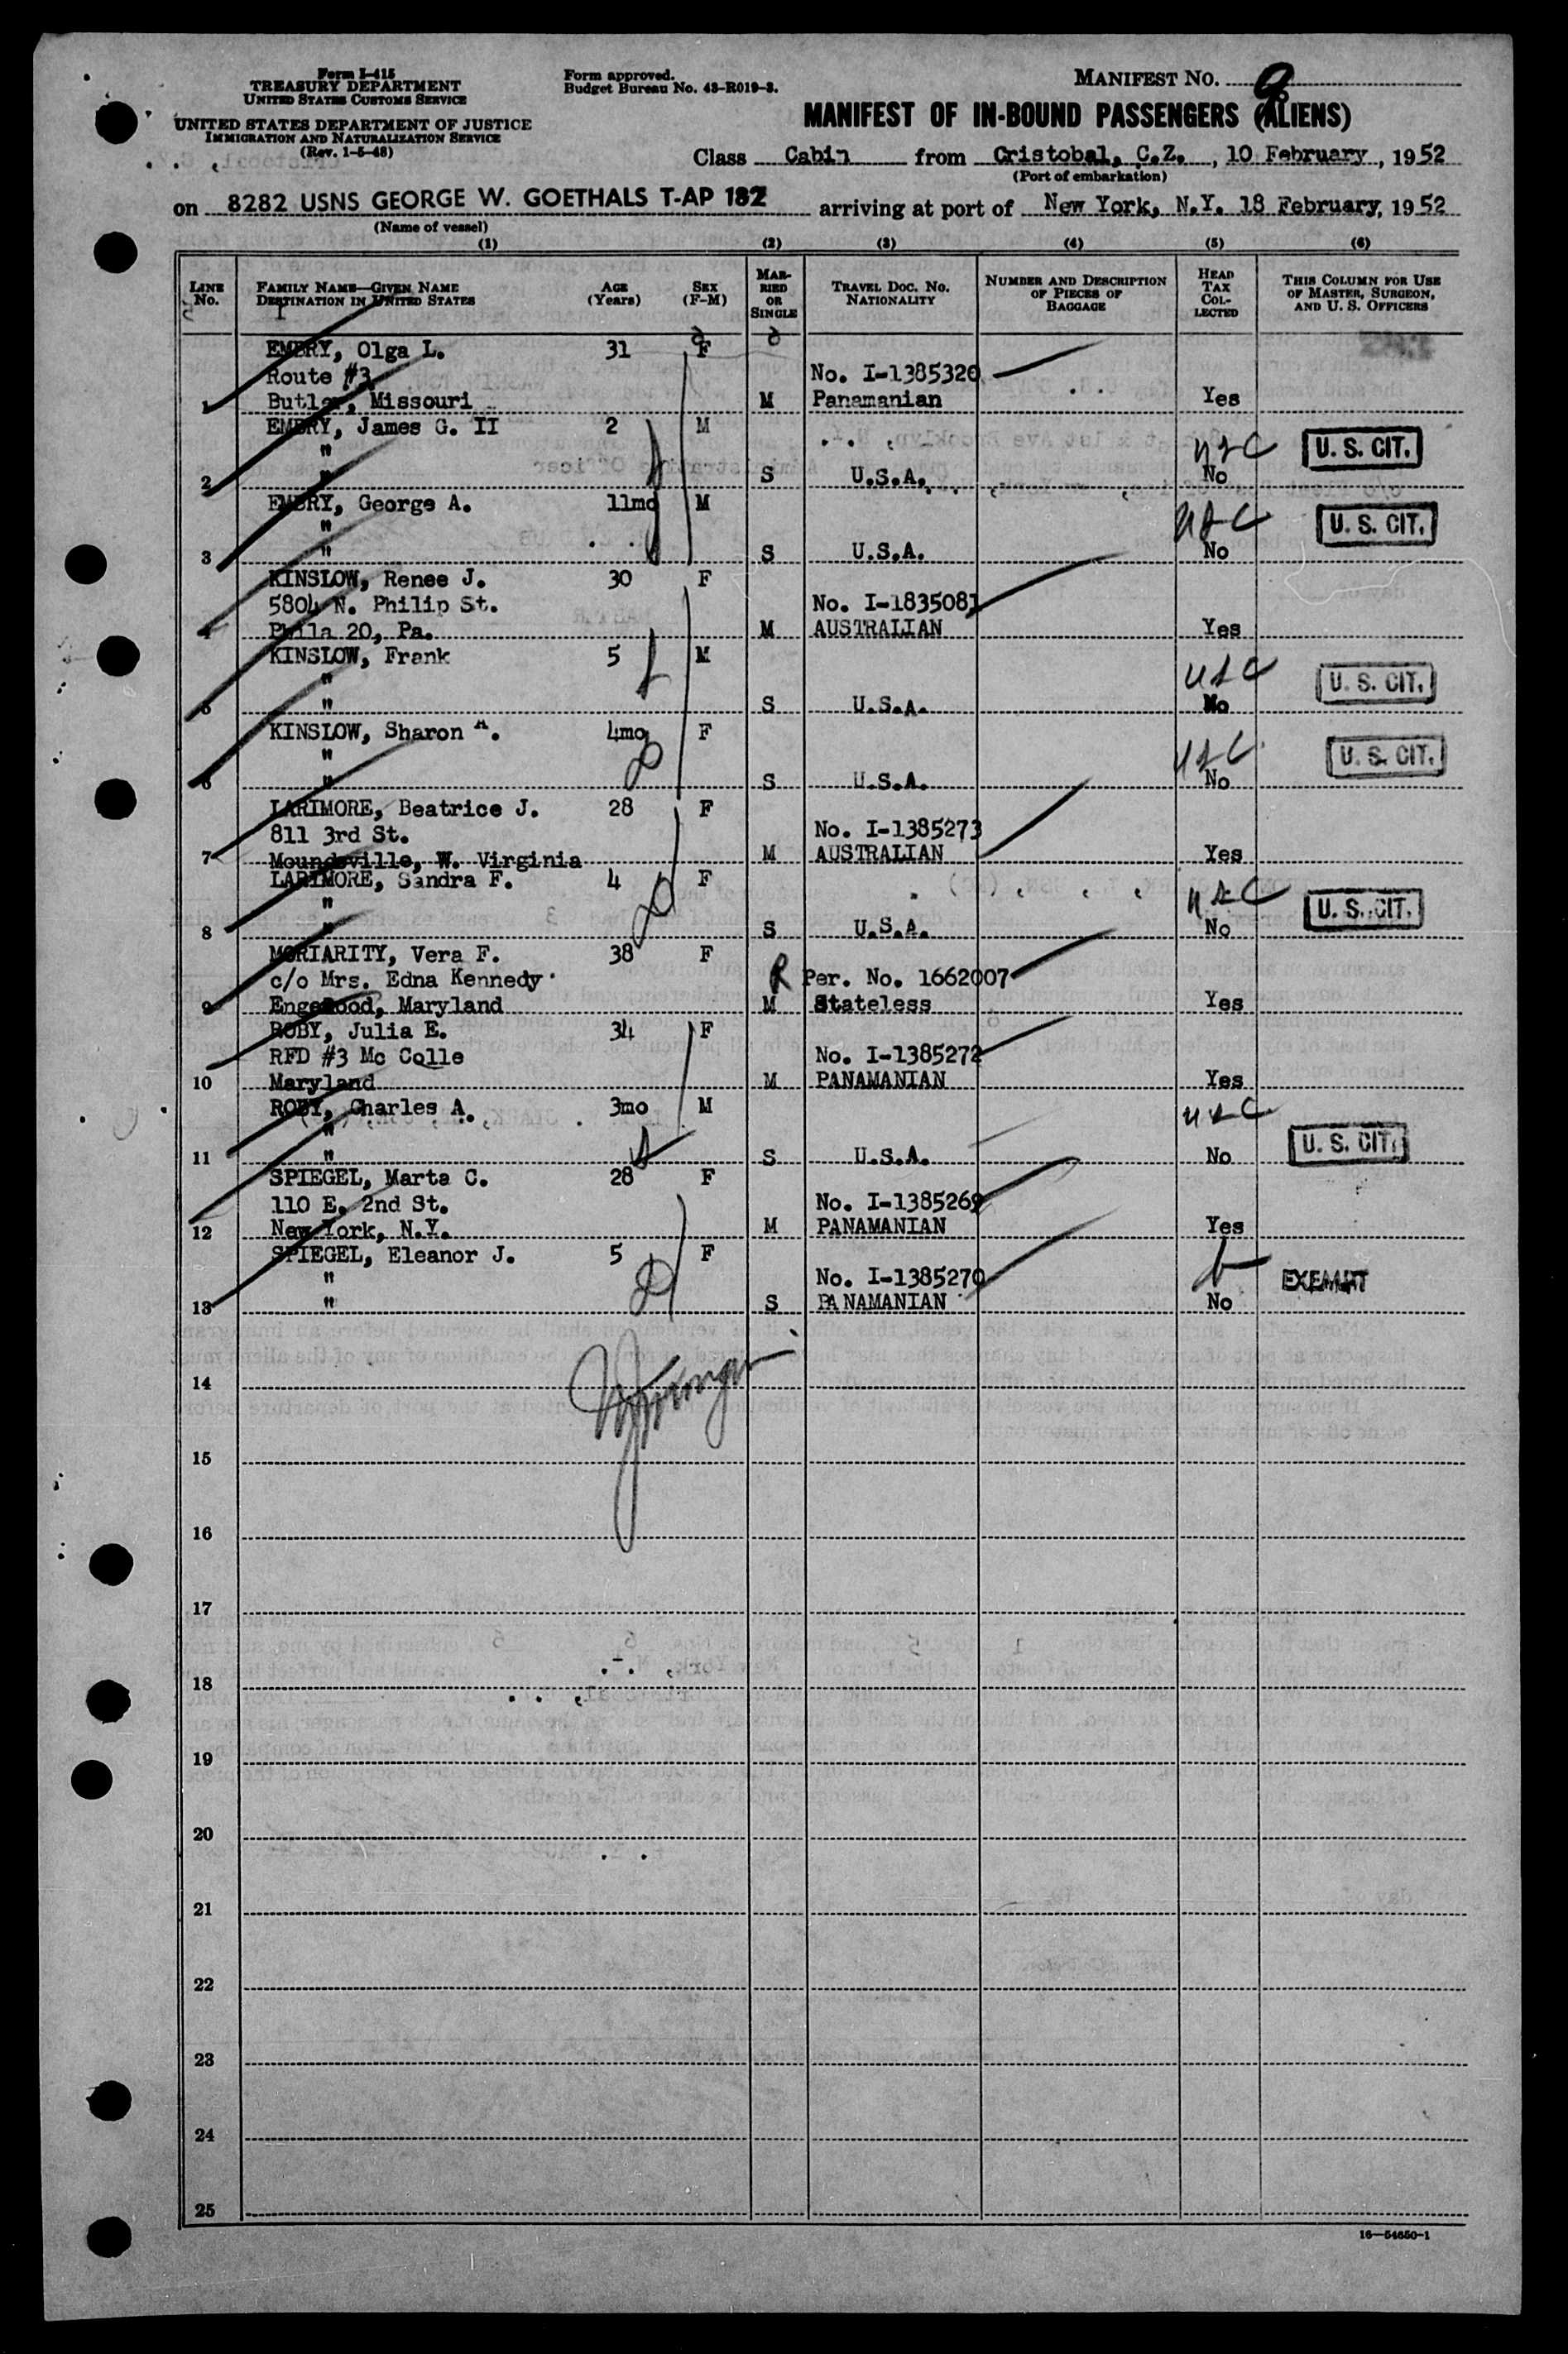 Form I-415
TREASURY DEPARTMENT
UNITED STATES CUSTOMS SERVICE
UNITED STATES DEPARTMENT OF JUSTICE
IMMIGRATION AND NATURALIZATION SERVICE
(Rev. 1-5-48)
Form approved.
Budget Bureau No. 43-R019-3.
MANIFEST NO. 9
MANIFEST OF IN-BOUND PASSENGERS (ALIENS)
Class Cabin from Cristobal, C.Z., 10 February, 1952
(Port of embarkation)
on 8282 USNS GEORGE W. GOETHALS T-AP 182 arriving at port of New York, N.Y. 18 February, 1952
(Name of vessel)
(1) (2) (3) (4) (5) (6)
LINE No.
FAMILY NAME—GIVEN NAME
DESTINATION IN UNITED STATES
AGE (Years)
SEX (F-M)
MARRIED OR SINGLE
TRAVEL DOC. NO. NATIONALITY
NUMBER AND DESCRIPTION OF PIECES OF BAGGAGE
HEAD TAX COLLECTED
THIS COLUMN FOR USE OF MASTER, SURGEON, AND U. S. OFFICERS
EMBRY, Olga L. 31 F
Route #3 No. I-1385320
1 Butler, Missouri M Panamanian Yes
EMBRY, James G. II 2 M
" usc U. S. CIT.
2 " S U.S.A. No
EMBRY, George A. 11mo M
" usc U. S. CIT.
3 " S U.S.A. No
KINSLOW, Renee J. 30 F
5804 N. Philip St. No. I-1835081
4 Phila 20, Pa. M AUSTRALIAN Yes
KINSLOW, Frank 5 M
" usc U. S. CIT.
5 " S U.S.A. No
KINSLOW, Sharon A. 4mo F
" usc U. S. CIT.
6 " S U.S.A. No
LARIMORE, Beatrice J. 28 F
811 3rd St. No. I-1385273
7 Moundsville, W. Virginia M AUSTRALIAN Yes
LARIMORE, Sandra F. 4 F
" usc U. S. CIT.
8 " S U.S.A. No
MORIARITY, Vera F. 38 F
c/o Mrs. Edna Kennedy R Per. No. 1662007
9 Engewood, Maryland M Stateless Yes
ROBY, Julia E. 34 F
RFD #3 Mc Colle No. I-1385272
10 Maryland M PANAMANIAN Yes
ROBY, Charles A. 3mo M
" usc U. S. CIT.
11 " S U.S.A. No
SPIEGEL, Marta C. 28 F
110 E. 2nd St. No. I-1385269
12 New York, N.Y. M PANAMANIAN Yes
SPIEGEL, Eleanor J. 5 F
" No. I-1385270 EXEMPT
13 " S PANAMANIAN No
14
15
16
17
18
19
20
21
22
23
24
25
16—54650-1